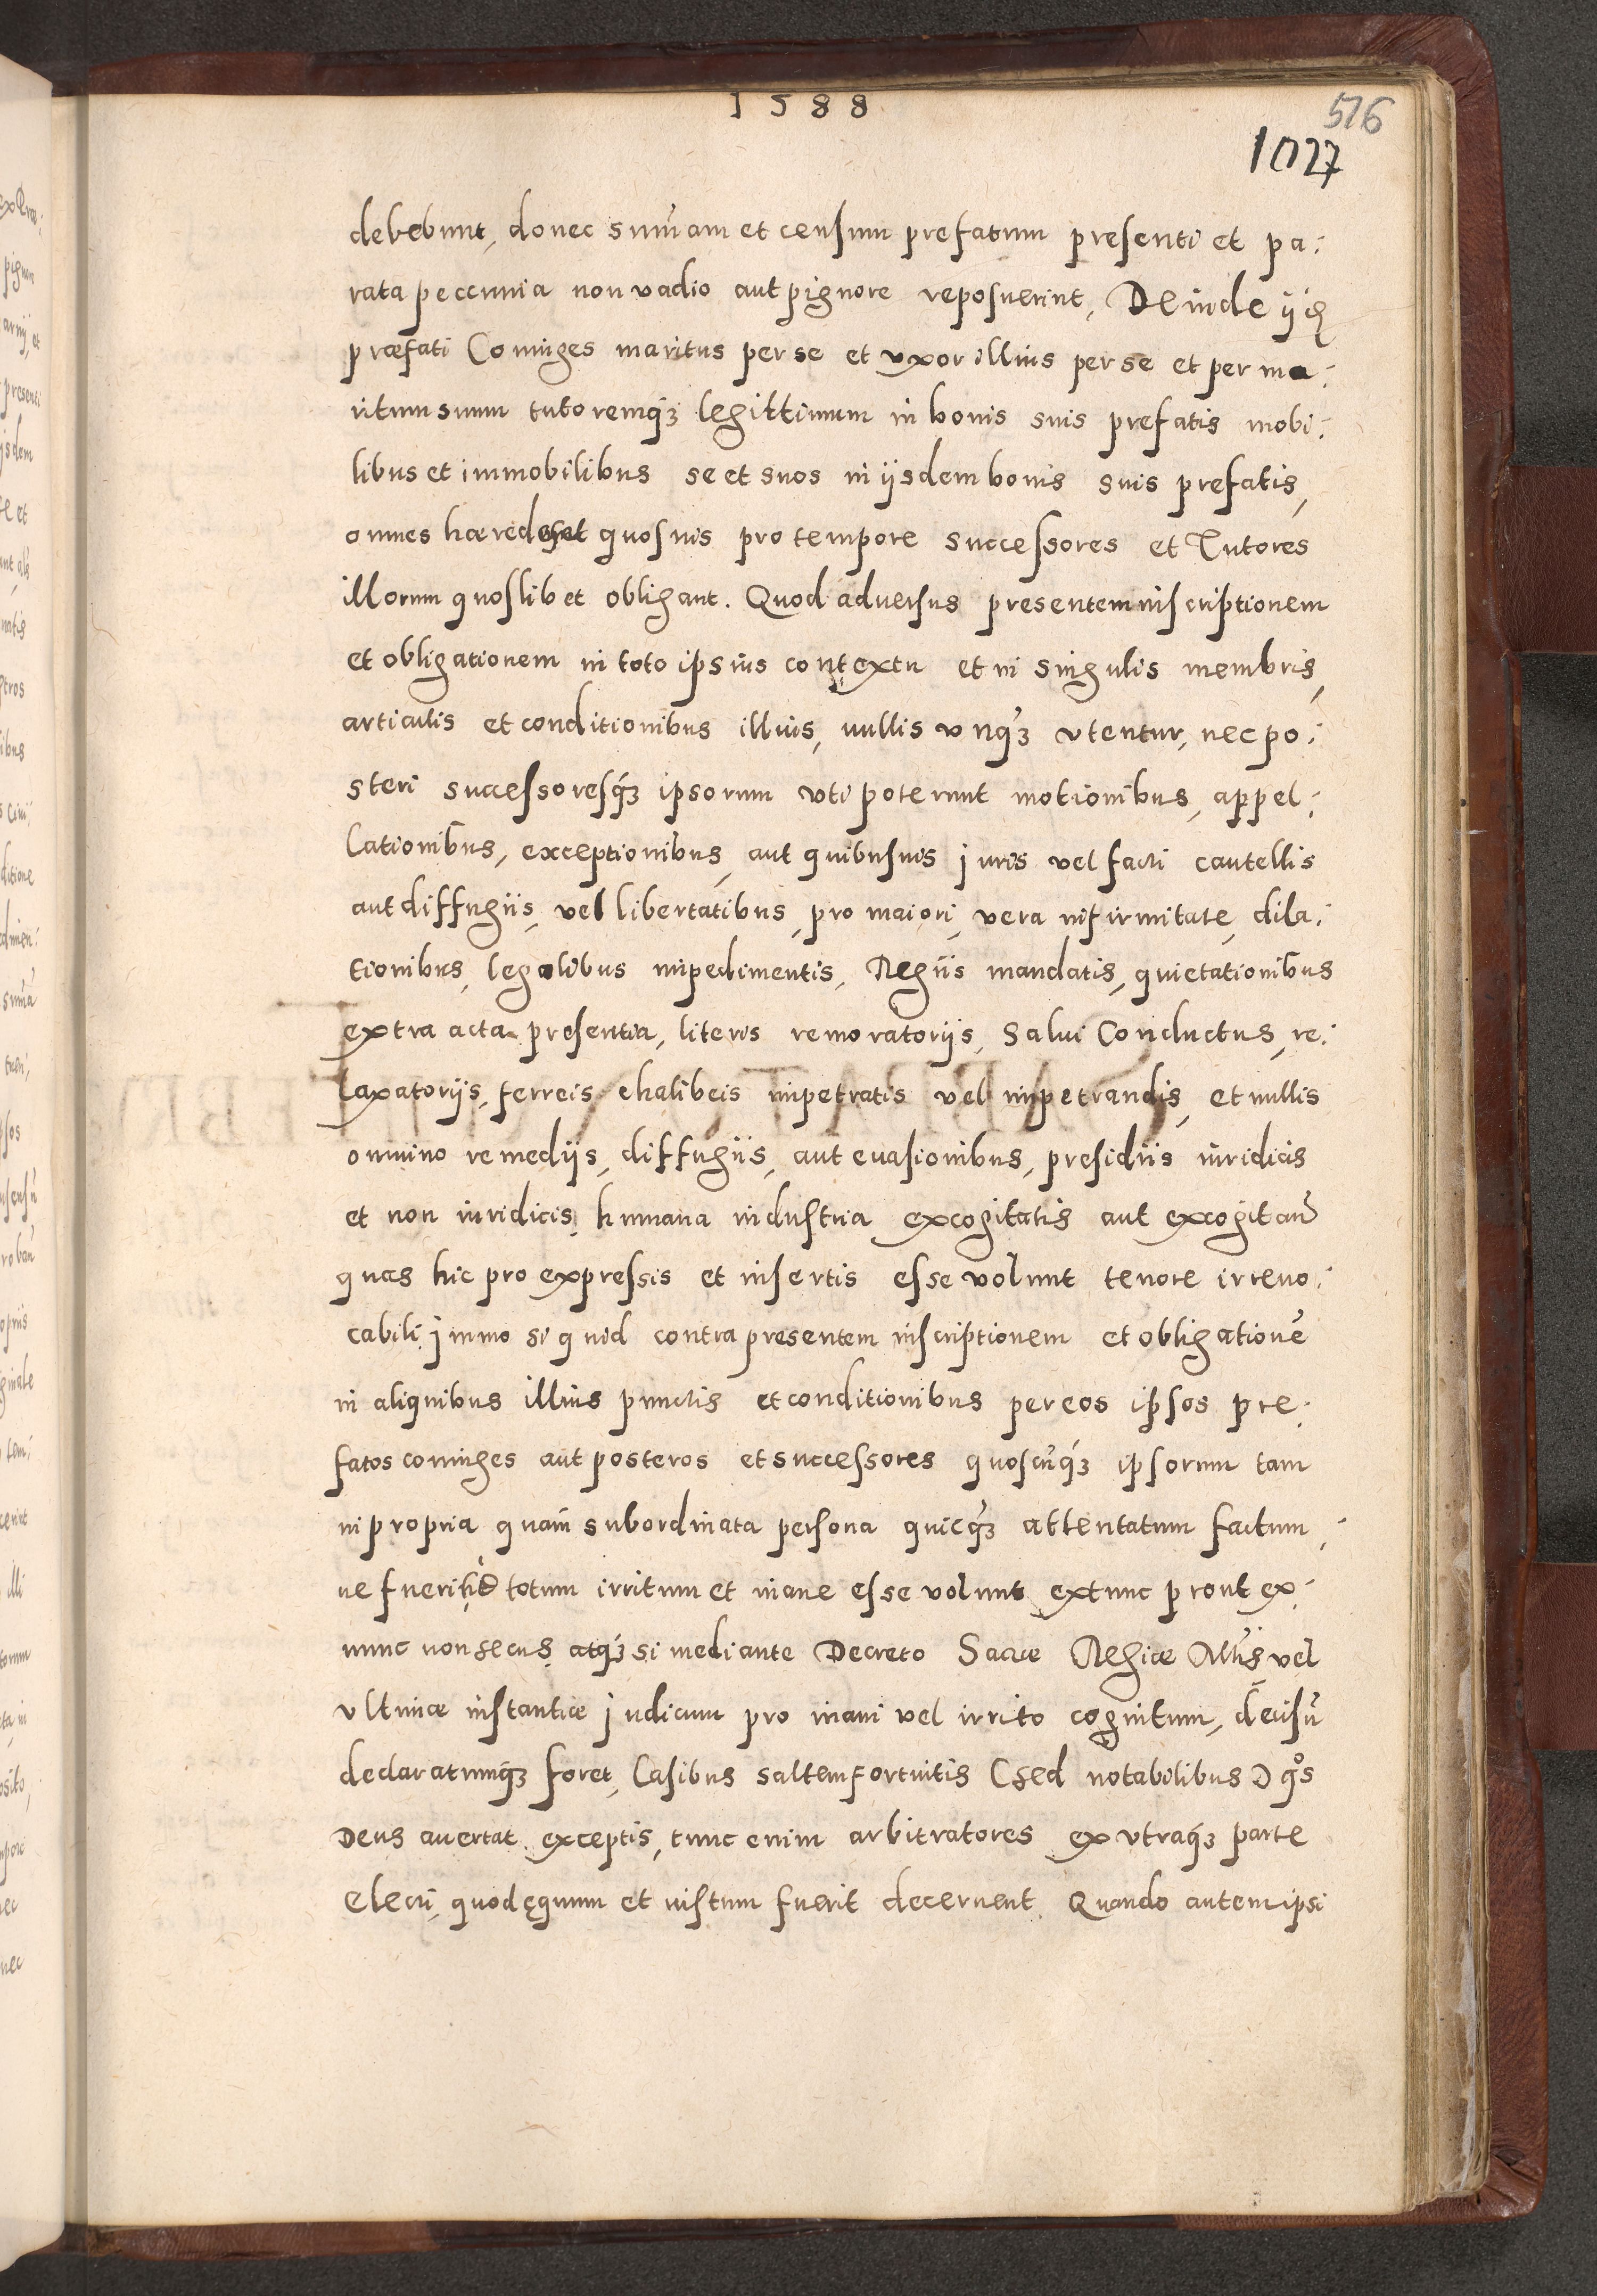 1588
516
1027
debebunt, donec sum̃am et censum prefatum presenti et pa:
rata peccunia non vadio aut pignore reposuerint, Deinde ijd
præfati Coniuges maritus per se et vxor illius per se et per ma:
ritum suum tutoremq3 legittimum in bonis suis prefatis mobi:
libus et immobilibus se et suos in ijsdem bonis suis prefatis,
omnes hæredes et quosuis pro tempore successores et Tutores
illorum quoslibet obligant. Quod aduersus presentem inscriptionem
et obligationem in toto ipsius contextu et in singulis membris,
articulis et conditionibus illius, nullis vnq̃3 vtentur, nec po:
steri successoresq́3 ipsorum vti poterunt motionibus, appel:
lationibus, exceptionibus, aut quibusuis juris vel facti cautellis
aut diffugiis, vel libertatibus, pro maiori, vera infirmitate, dila:
tionibus, legalibus impedimentis, Regiis mandatis, quietationibus
extra acta presentia, literis remoratorijs, Salui Conductus, re:
laxatorijs, ferreis chalibeis impetratis vel impetrandis, et nullis
omnino remedijs, diffugiis, aut euasionibus, presidiis iuridicis
et non iuridicis, humana industria excogitatis aut excogitan̄
quas hic pro expressis et insertis esse volunt tenore irreuo:
cabili. jmmo si quid contra presentem inscriptionem et obligationē
in aliquibus illius punctis et conditionibus per eos ipsos pre:
fatos coniuges aut posteros et successores quoscūq́3 ipsorum tam
in propria quam subordinata persona quicq̃3 attentatum factum,
ue fuerint totum irritum et inane esse volunt extunc prout ex:
nunc non secus, atq́3 si mediante Decreto Sacræ Regiæ Mttis vel
vltimæ instantiæ judicum pro inani vel irrito cognitum, decisū
declaratumq́3 foret, Casibus saltem fortuitis (sed notabilibus) q̊s
Deus auertat exceptis, tunc enim arbitratores ex vtraq́3 parte
electi, quod ęquum et iustum fuerit decernent. Quando autem ipsi